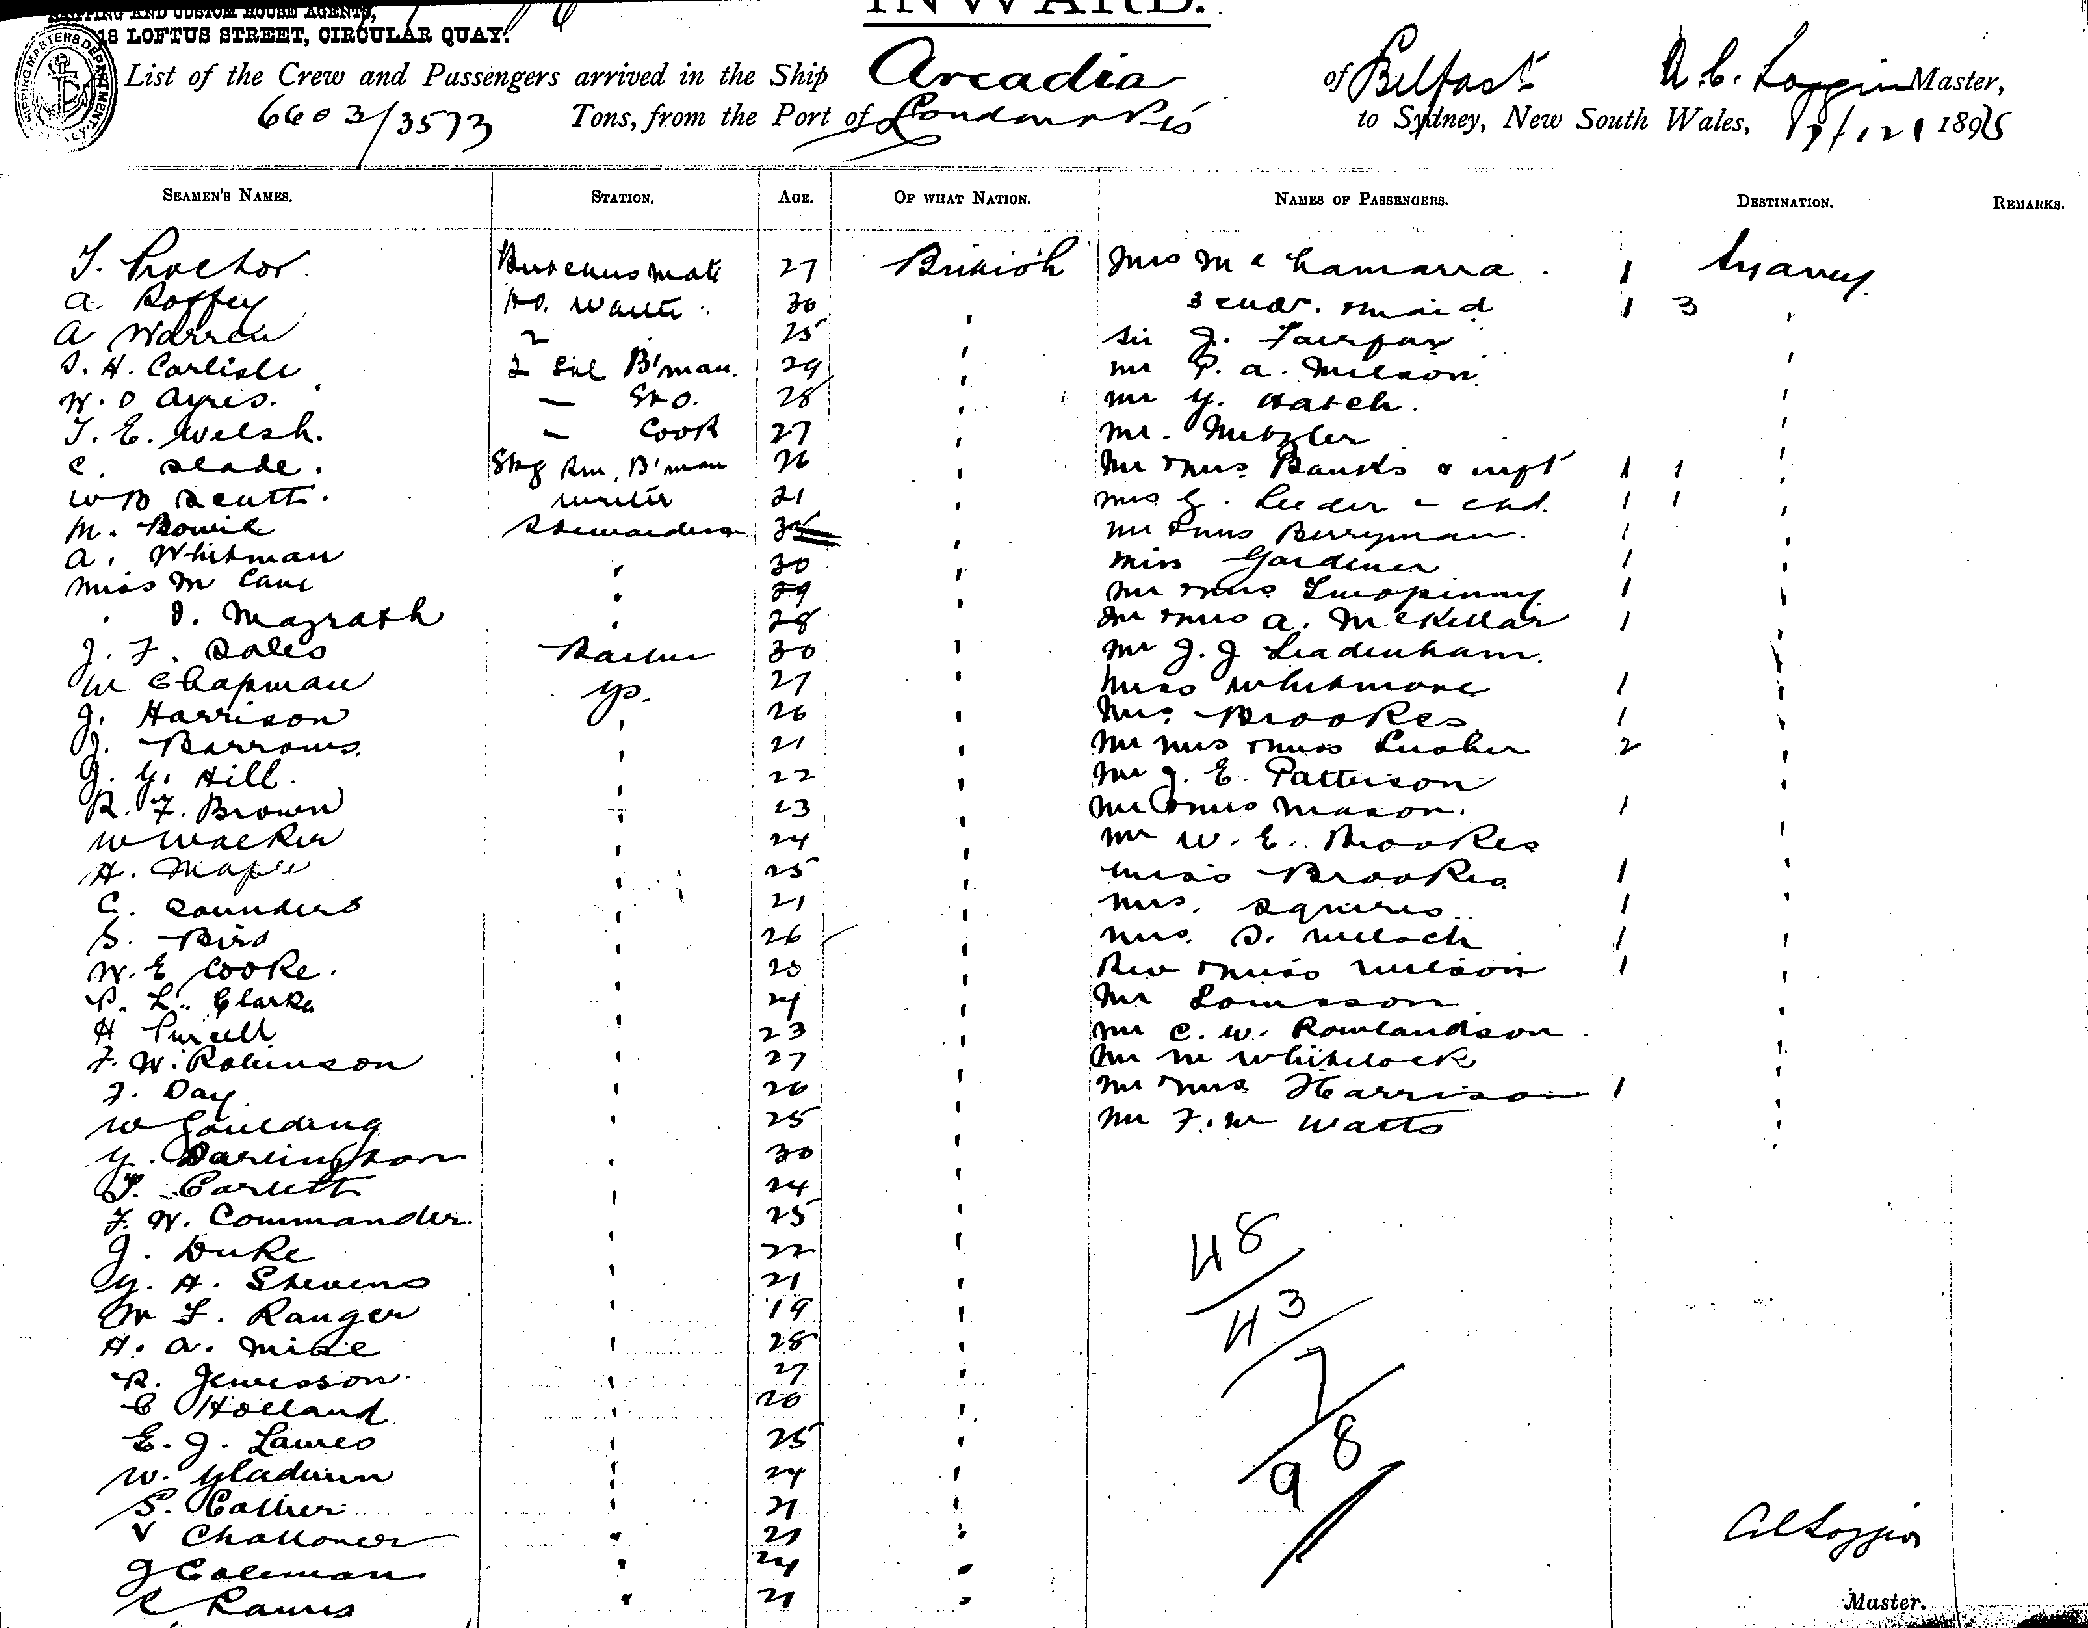 INWARD.
SHIPPING AND CUSTOM HOUSE AGENTS,
18 LOFTUS STREET, CIRCULAR QUAY.
List of the Crew and Passengers arrived in the Ship Arcadia of Belfast A. C. Loggin Master,
6603/3573 Tons, from the Port of London to Sydney, New South Wales, 1895
SEAMEN'S NAMES. STATION. AGE. OF WHAT NATION. NAMES OF PASSENGERS. DESTINATION. REMARKS.
T. Proctor. Butchers mate 27 British Mrs McNamara. 1 Sydney
A Roffey Hd. Waiter. 30 " 3 chdr. maid 1 3 "
A Warren " 25 " Sir J. Fairfax
S. H. Carlisle 2 Sal B'man. 29 " Mr P. A. Wilson "
W. D Ayres. 28 " Mr G. Hatch. "
T. E. Welsh. Cook 27 " Mr. Metzler "
C. Slade. Stg Rm. B'man 26 " Mr & Mrs Banks & inft 1 1 "
W B Scutt. writer 21 " Mrs G. Leeder & chd. 1 1 "
M. Stewardess " Mr & Mrs Berryman. 1 "
A. Whitman " 30 " Miss Gardiner 1 "
Miss M Cane " 29 " Mr & Mrs Twopinny 1 "
" D. Magrath " 28 " Mr & Mrs A. McKellar 1 "
J. F. Sales Barber 30 " Mr J. J Leadenham. "
W Chapman GS. 27 " Miss Whitmore 1 "
J. Harrison " 26 " Mrs Brookes 1 "
J. Barrows. " 21 " Mr Mrs & Miss Lusher 2 "
J. G. Hill. " 22 " Mr J. E. Patterson "
R. F. Brown " 23 " Mr & Mrs Mason. 1 "
W Walker " 24 " Mr W. E. Brookes "
H. Maple " 25 " Miss Brookes 1 "
C. Saunders " 21 " Mrs. Squires 1 "
S. Bird " 26 " Mrs. S. 1 "
W. E Cooke. " 20 " Rev & Miss Wilson 1 "
P. L. Clarke " 24 " Mr
H Purcell " 23 " Mr C. W. Rowlandson "
F. W. Robinson " 27 " Mr W Whitelock "
F. Day " 26 " Mr & Mrs Harrison 1 "
W Goulding " 25 " Mr F. W Watts "
G. Darlington " 30 "
T. " 24 "
F. W. Commander " 25 "
J. Duke " 22 "
G. H. Stevens " 21 "
W F. Ranger " 19 "
H. A. " 28 "
R. Jewesson " 27 "
C Holland " 20 "
E. J. Lawes " 25 "
W. Gladwin " 24 "
S. " 21 "
V Challoner " 21 "
J Coleman " 24 "
" 21 "
48
43
7
98
A C Loggin
Master.